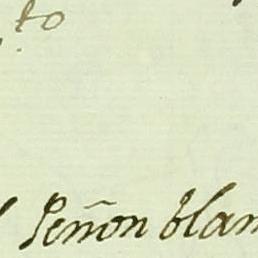 to
Peñon blan